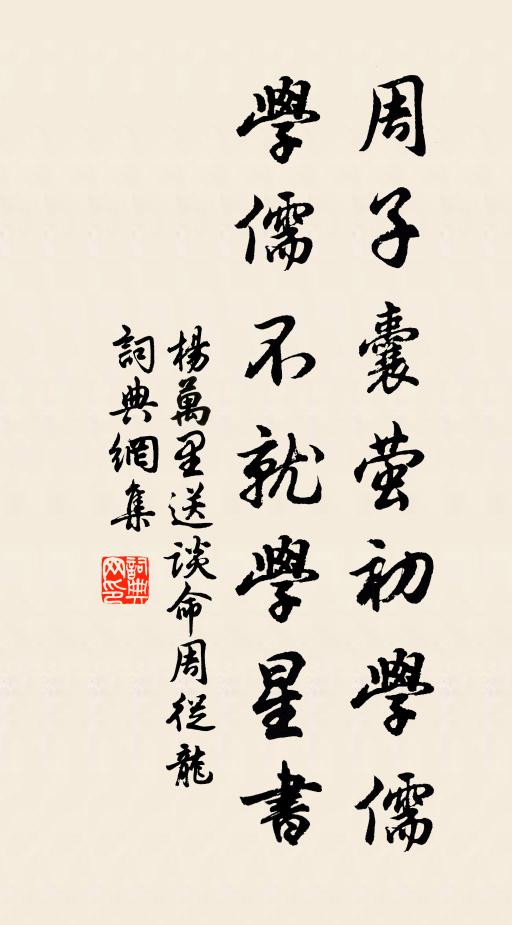 周子囊萤初學儒
學儒不就學星書
楊萬里送談命周從龍
詞典網集
詞典网印